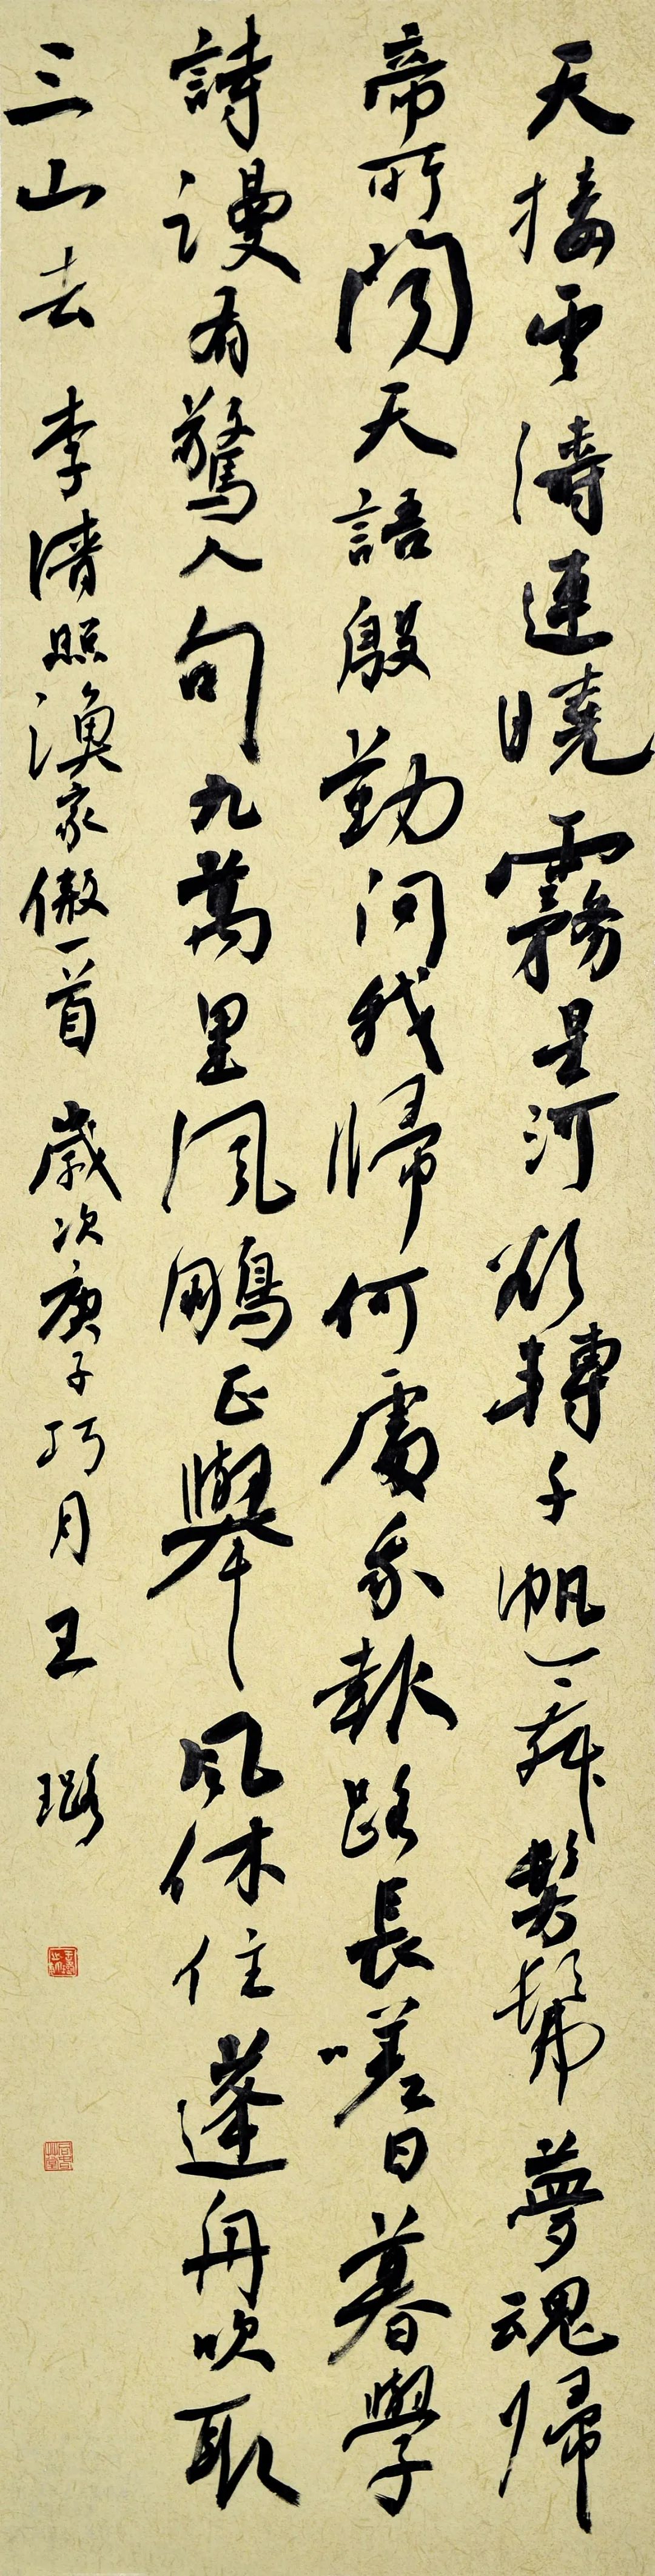 天接雲濤連曉霧星河欲轉千帆舞髣髴夢魂歸
帝所聞天語殷勤問我歸何處我報路長嗟日暮學
詩謾有驚人句九萬里風鵬正舉風休住蓬舟吹取
三山去 李清照漁家傲一首 歲次庚子巧月王璐